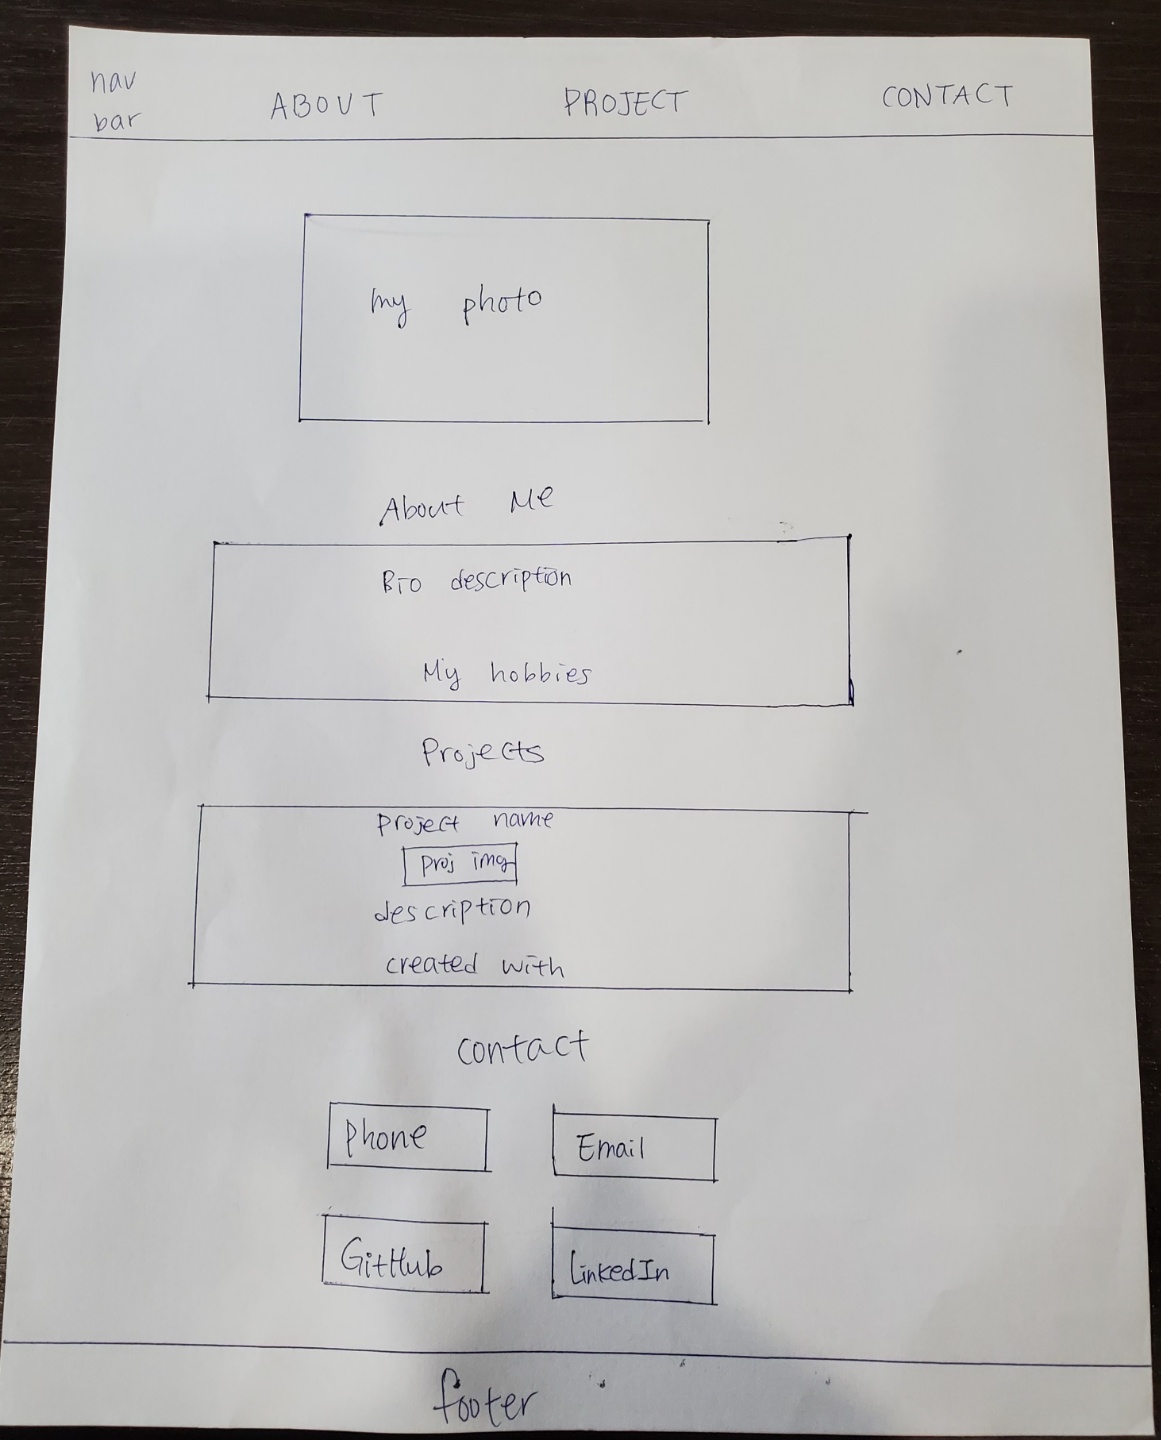 nav
bar
ABOUT PROJECT CONTACT
my photo
About Me
Bio description
My hobbies
Projects
project name
proj img
description
created with
contact
Phone Email
GitHub LinkedIn
footer